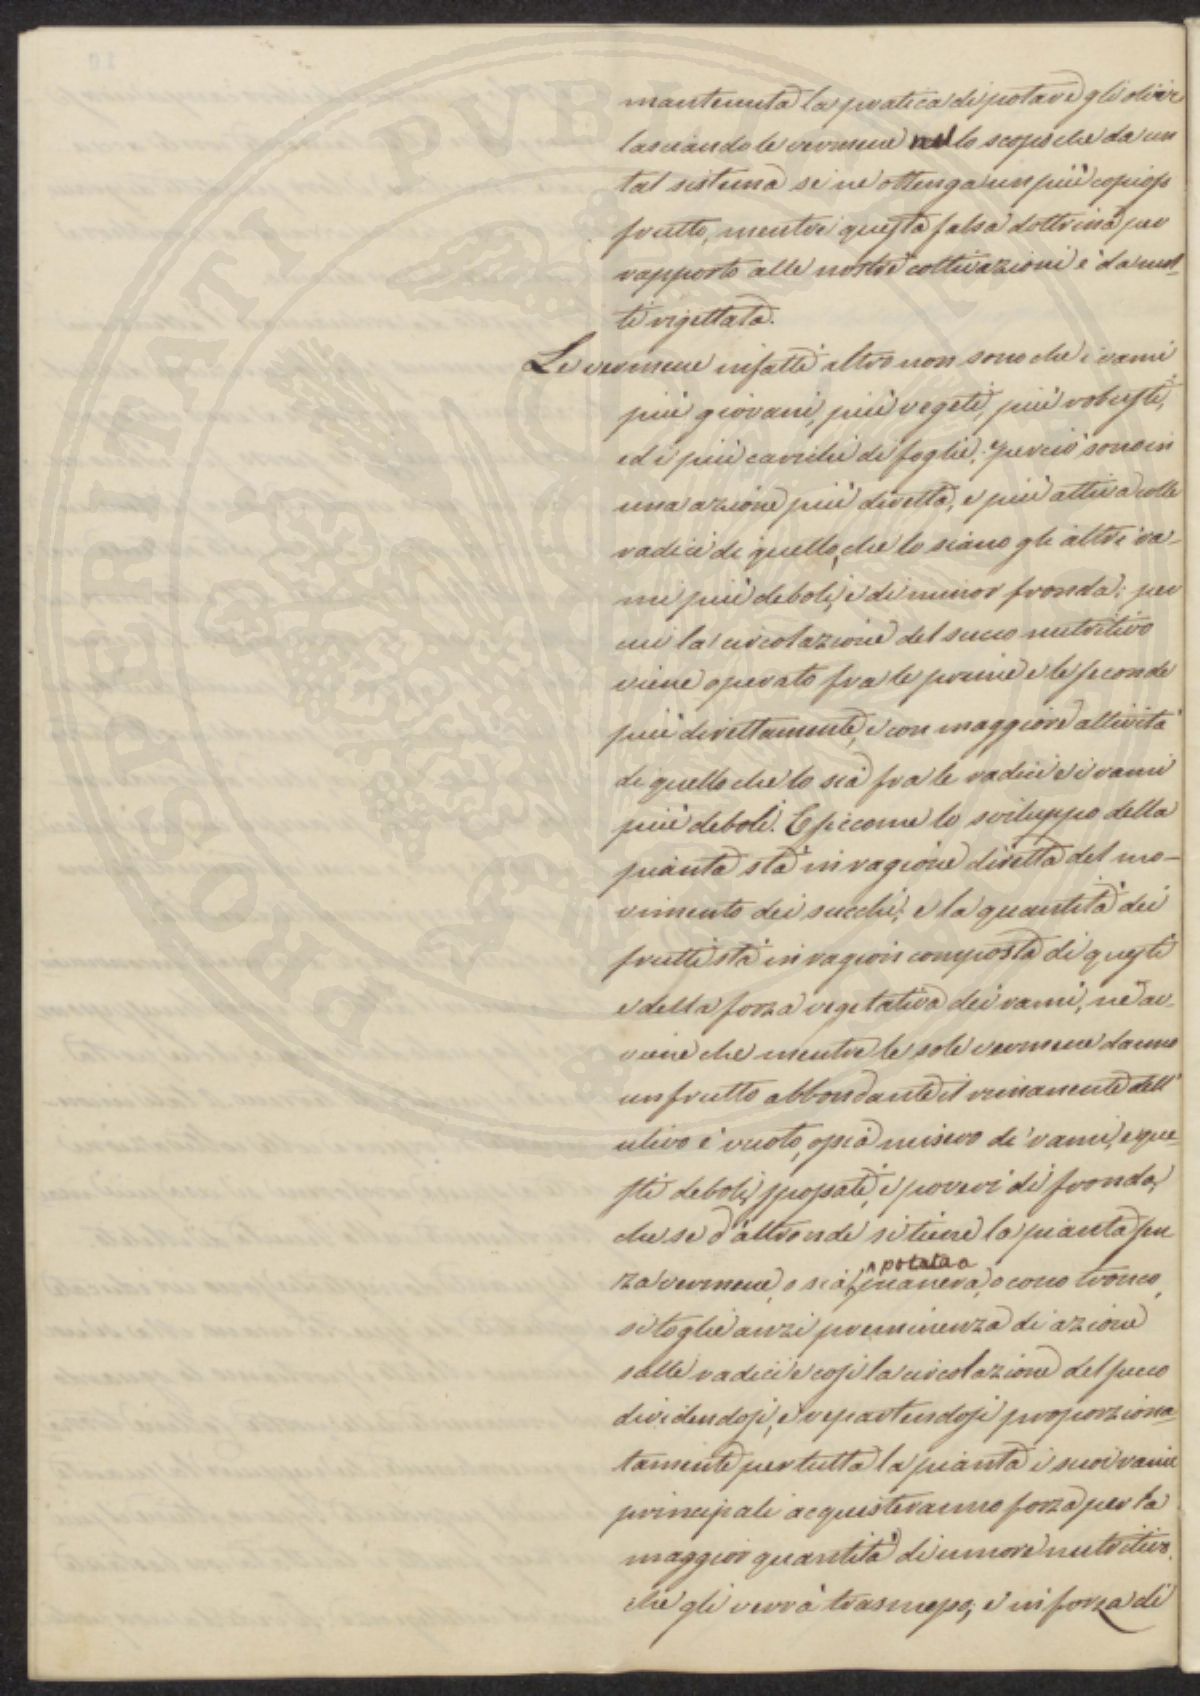 mantenuta la pratica di potare gli olivi
lasciando le vermene nello scopo che da un
tal sistema se ne ottenga un più copioso
frutto, mentre questa falsa dottrina per
rapporto alle nostre coltivazioni è da mol-
ti rigettata.
Le vermene infatti altro non sono che i rami
più giovani, più vegeti, più robusti,
ed i più carichi di foglie; perciò sono in
una azione più diretta, e più attiva colle
radici di quello, che lo siano gli altri ra-
mi più deboli, e di minor fronda; per
cui la circolazione del succo nutritivo
viene operato fra le prime e le seconde
più direttamente, e con maggiore attività
di quello che lo sia fra le radici e i rami
più deboli. E siccome lo sviluppo della
pianta sta in ragione diretta del mo-
vimento dei succhi; e la quantità dei
frutti sta in ragion composta di questi
e della forza vegetativa dei rami, ne av-
viene che mentre le sole vermene danno
un frutto abbondante il rimanente dell'
ulivo è vuoto, o sia misero di rami, e que-
sti deboli, spossati, e poveri di fronda;
che se d'altronde si tiene la pianta sen
za vermene, o sia potata a maniera, o cono tronco,
si toglie anzi preminenza di azione
sulle radici e così la circolazione del succo
dividendosi, e repartendosi proporziona-
tamente per tutta la pianta i suoi rami
principali acquisteranno forza per la
maggior quantità di umore nutritivo,
che gli verrà trasmesso; e in forza di
PROSPERITATI PVBLICAE